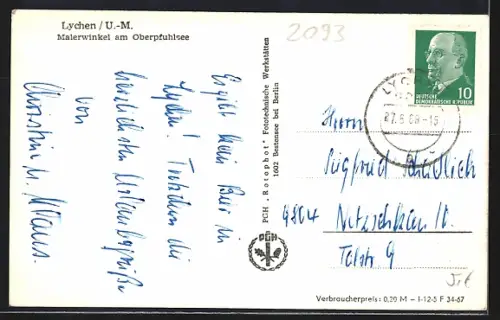 Lychen / U.-M.
Malerwinkel am Oberpfuhlsee
2093
Es gibt kein Bier in
Lychen! Trotzdem die
herzlichsten Urlaubsgrüße
von
Christin u. Klaus.
PGH „Rotophot" Fototechnische Werkstätten
1602 Bestensee bei Berlin
PGH
DEUTSCHE
DEMOKRATISCHE REPUBLIK
10
LYCHEN
Herrn
Siegfried
9804 Netzschkau
Talstr. 9
Verbraucherpreis: 0,20 M – I-12-5 F 34-67